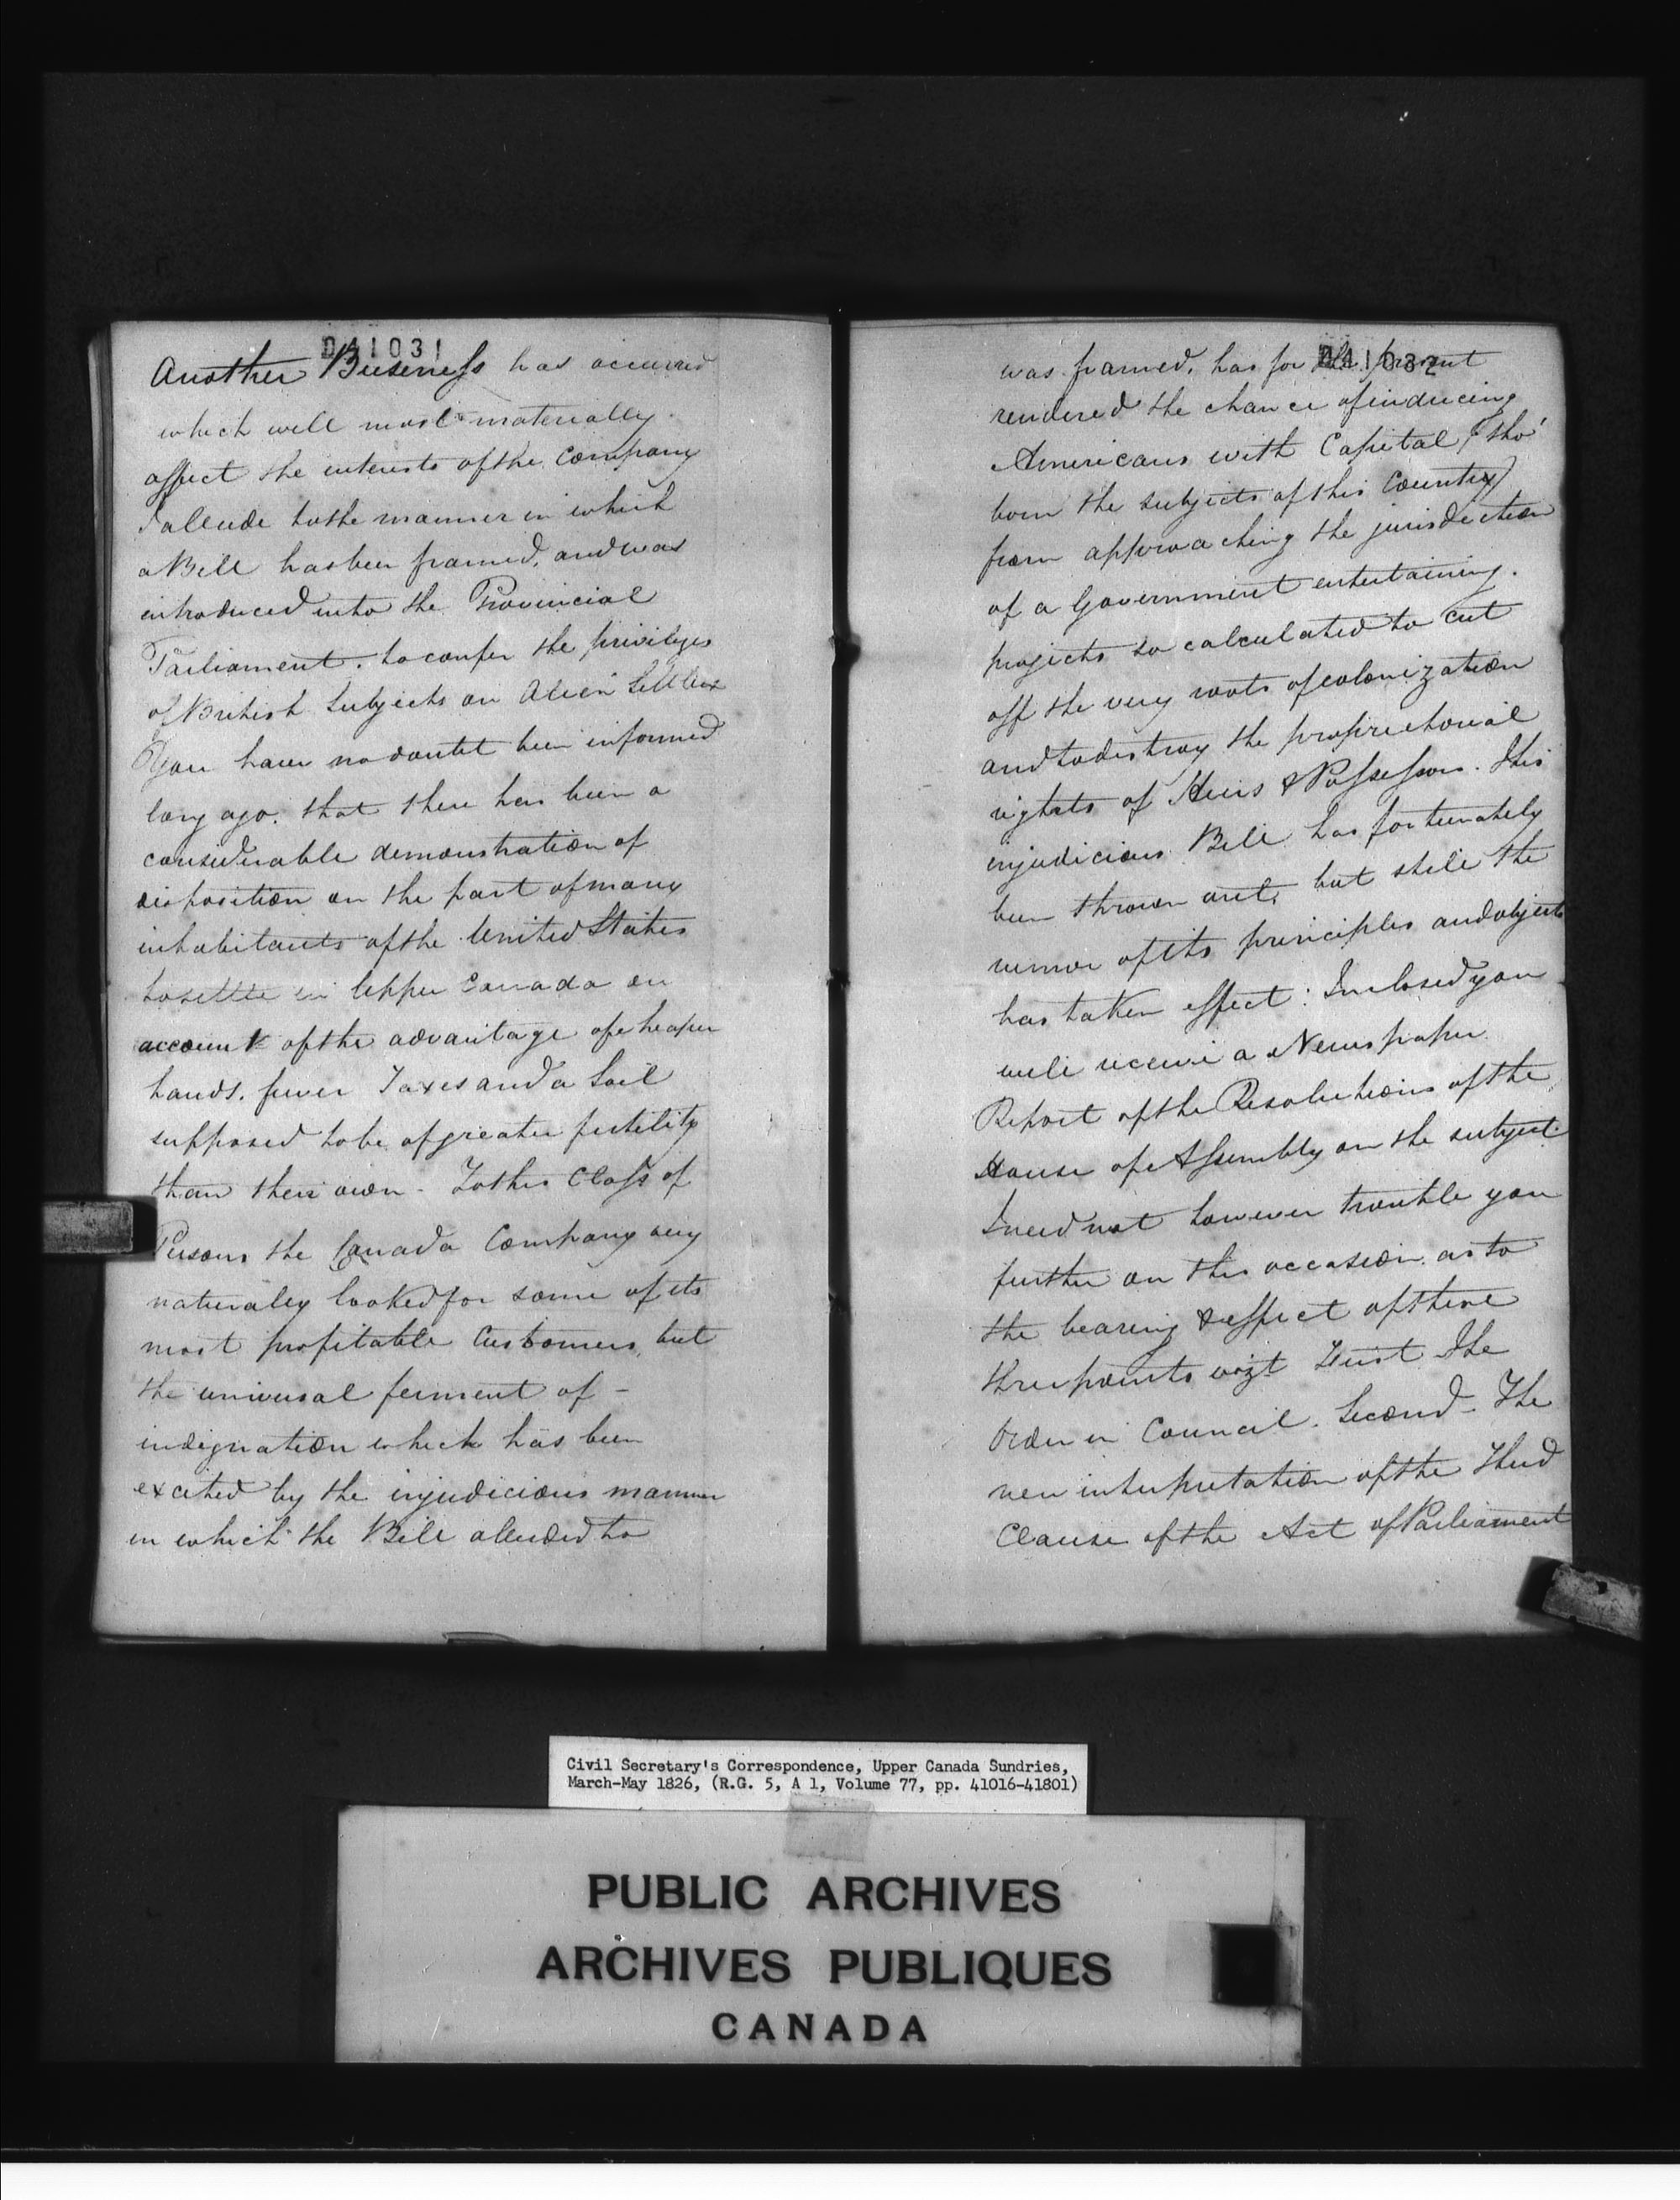 041031
Another Business has occurred
which will most materially
affect the interests of the Company
I allude to the manner in which
a Bill has been framed, and was
introduced into the Provincial
Parliament. to confer the privileges
of British Subjects on Alien Settlers
You have no doubt been informed
long ago. that there has been a
considerable demonstration of
disposition on the part of many
inhabitants of the United States
to settle in Upper Canada on
account of the advantage of cheaper
lands. fewer Taxes and a Soil
supposed to be of greater fertility
than their own - To this Class of
Persons the Canada Company very
naturaley looked for some of its
most profitable Customers, but
the universal ferment of -
indignation which has been
excited by the injudicious manner
in which the Bill alluded to
041032
was framed, has for the present
rendered the chance of inducing
Americans with Capital (tho'
born the subjects of this Country)
from approaching the jurisdiction
of a Government entertaining.
projects so calculated to cut
off the very roots of colonization
and to destroy the proprietorial
rights of Heirs & Possessors. This
injudicious Bill has fortunately
been thrown out, but still the
rumor of its principles and objects
has taken effect: Inclosed you
will receive a Newspaper
Report of the Resolutions of the
House of Assembly on the subject.
I need not however trouble you
further on this occasion, as to
the bearing & effect of these
three points vizt First The
Order in Council. Second - The
new interpretation of the Third
Clause of the Act of Parliament
Civil Secretary's Correspondence, Upper Canada Sundries,
March-May 1826, (R.G. 5, A 1, Volume 77, pp. 41016-41801)
PUBLIC ARCHIVES
ARCHIVES PUBLIQUES
CANADA